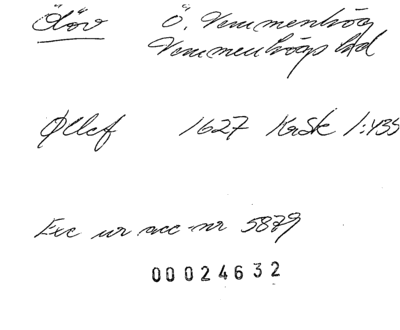 Ölöv Ö. Vemmenhög
Vemmenhögs hd
Øllef 1627 KrSk 1:435
Exc ur acc nr 5879
00024632